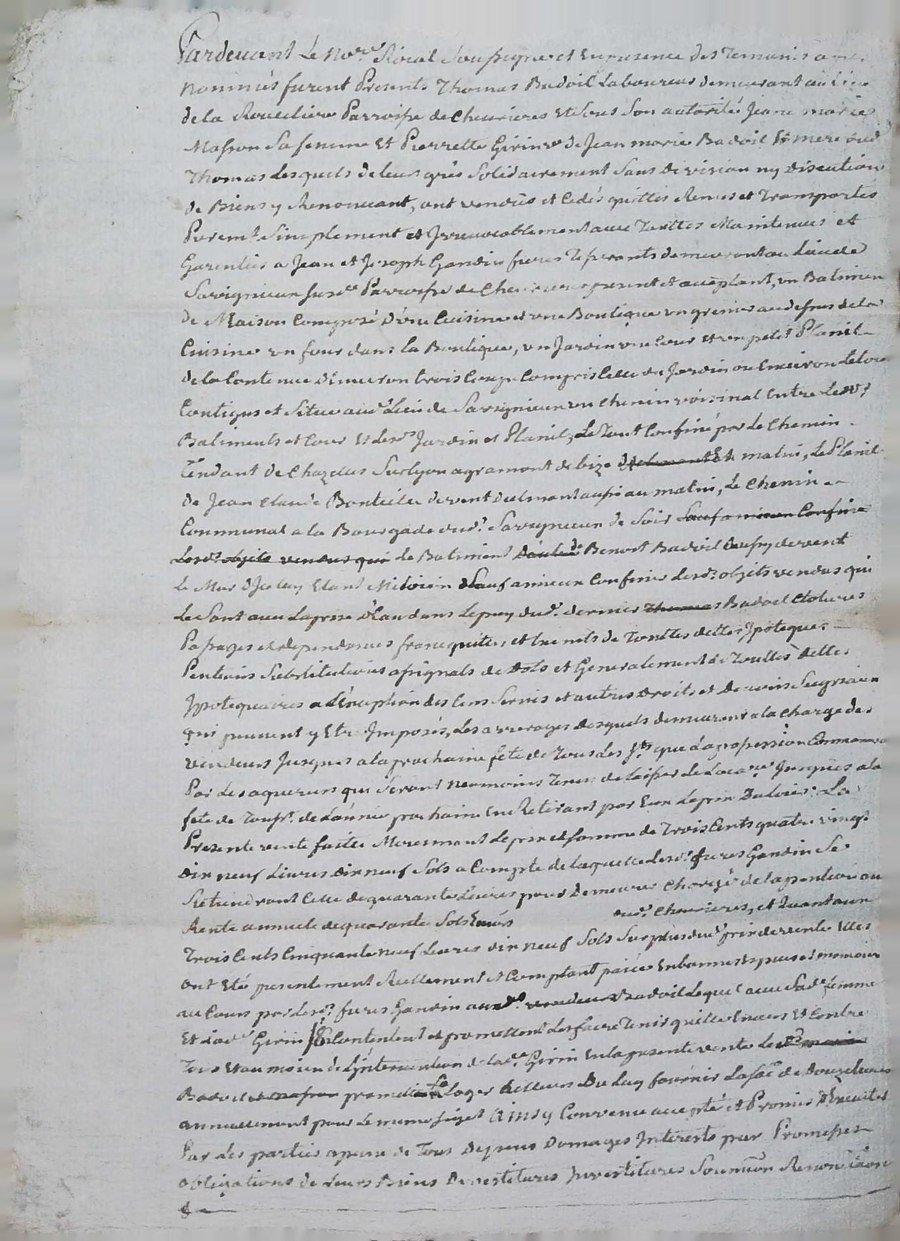 Pardevant Le No.re Roïal Soussigné et En presence des Temoins apres
nommés furent Presents Thomas Badoil Laboureur demeurant au Lieu
de la Rouëliere Parroisse de Chevrieres Et Sous Son autorité Jeane marie
Masson Sa femme Et Pierrette Girin v.e de Jean marie Badoil Et mere dud.
Thomas Lesquels de leurs grés Solidairement Sans Division ny Discution
de Biens y Renoncant, ont vendus et Cedés quittés Remis et Transportés
Purem.t Simplement et Irrevocablement avec Touttes Maintenues et
Garenties a Jean et Joseph Gandin freres demeurant au Lieu de
Savignieux Susd.e Parroisse de Chevrieres present et acceptant, un Batimen
de Maison Composé D'une Cuisine et une Boutique un grenier au dessus de la
Cuisine un four dans la Boutique, un Jardin une Cour et un petit Planil
de la Contenue D'environ trois Compris Celle du Jardin ou Environ Le tou
Contigus et Situé aud.t Lieu de Savignieux un Chemin voisinal Entre Lesd.s
Batiments et Cour Et Lesd.s Jardin et Planil, Le Tout Confiné par Le Chemin
Tendant de Chazelles Sur Lyon a gramont de bize Et matin, Le Planil
de Jean Claude de vent du mont aussi au matin, Le Chemin
Communal a la Bourgade dud.t Savignieux de Soir Sauf a mieux Confiner
Lesd.s objets vendus qui de Batiment Benoit Badoil de vent
Le Mur D'Iceluy Etant Mitoïen Sauf a mieux Confiner Lesd.s objets vendus qui
Le Sont avec La prise D'Eau dans Le puy dud.t dernier Thomas Badoil Clotures
Passages et dependances francs quittes, et Exempts de Touttes dettes, Ypoteques
Pentions Substitutions de Dots et Generalement de Touttes dettes
Ypotequaires a L'exception des Cens Servis et autres Droits et Devoirs Seigriaux
qui peuvent y Etre Imposés, Les arrerages desquels demeurent a la Charge des
vendeurs Jusques a la prochaine fete de Tous Les S.ts que La possession Commencera
Par Les aquereurs qui Seront neomoins Tenus de Laisser Jusques a la
fete de Touss.t de L'année prochaine En Retirant par Eux Le prix La
Presente vente faite Moienant Le prix et Somme de Trois Cents quatre vingt
Dix neuf Livres Dix neuf Sols a Compte de laquelle Lesd.s freres Gandin Se
Retiendront Celle de quarante Livres pour Demeurer Chargé de la pention ou
Rente annuele de quarante Sols Envers aud.t Chevrieres, et Quant aux
Trois Cents Cinquante neuf Livres dix neuf Sols Surplus dud.t prix de vente Elles
ont Eté presentement Reellement et Comptant païées En bonnes Especes et monnoie
au Cours par Lesd.s freres Gandin Badoil Lequel avec Sad.e femme
Et Lad.e Girin Se Contentent et promettent Les faire Tenir quittes Envers Et Contre
Tous Et au moïen de L'intervention de lad.e Girin En la presente vente
Badoil promet La Loger de Luy fournir
annuelement pour Le meme Sujet Ainsy Convenu accepté et Promis D'Executer
Par Les parties a peine de Tous Depens Domages Interets par Promesses
obligations de Leurs Biens Devestitures Investitures Soumion Renontiaon
&